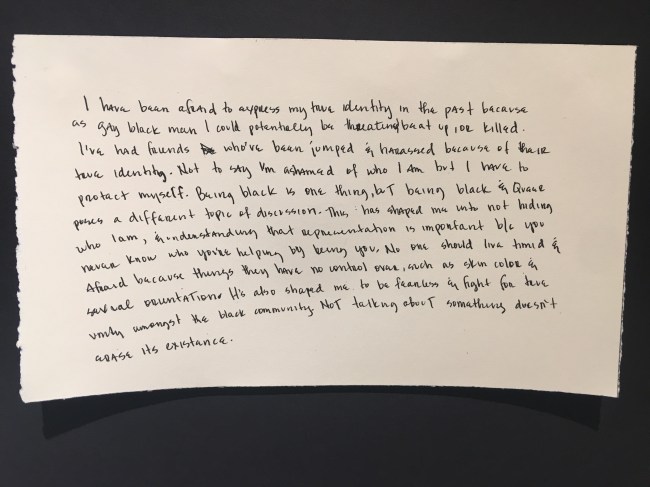 I have been afraid to express my true identity in the past because
as gay black man I could potentially be threating beat up, or killed.
I've had friends who've been jumped & harassed because of their
true identity. Not to say I'm ashamed of who I am but I have to
protect myself. Being black is one thing, but being black & Queer
poses a different topic of discussion. This has shaped me into not hiding
who I am, & understanding that representation is important b/c you
never know who you're helping by being you. No one should live timid &
Afraid because things they have no control over, such as skin color &
sexual orientation. It's also shaped me to be fearless & fight for true
unity amongst the black community. Not talking about something doesn't
erase its existance.